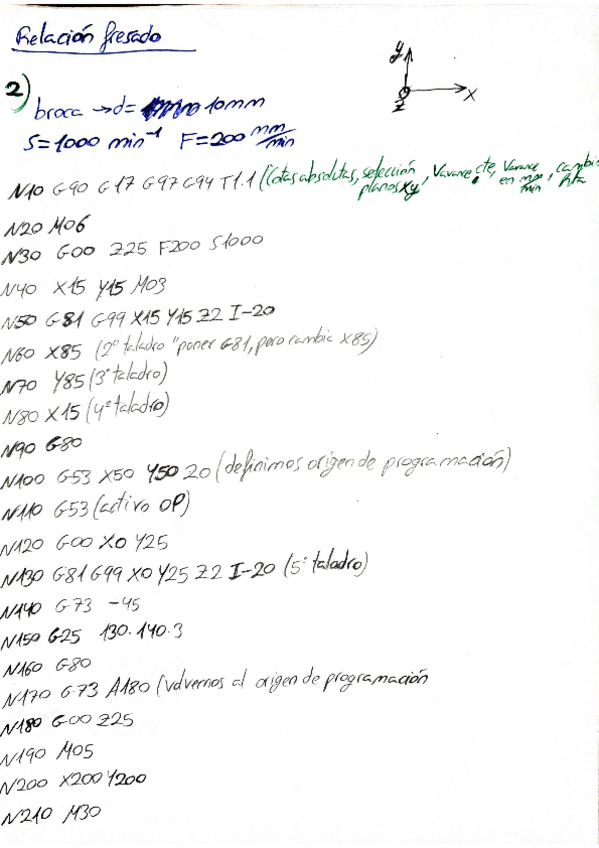 Relación fresado
y
x
z
2)
broca → d= 10mm
S=1000 min⁻¹ F=200 mm/min
N10 G90 G17 G97 G94 T1.1 (Cotas absolutas, selección planos xy, Vavance cte, Vavance en mm/min, cambio hta
N20 M06
N30 G00 Z25 F200 S1000
N40 X15 Y15 M03
N50 G81 G99 X15 Y15 Z2 I-20
N60 X85 (2º taladro "poner G81, pero cambia X85)
N70 Y85 (3º taladro)
N80 X15 (4º taladro)
N90 G80
N100 G53 X50 Y50 Z0 (definimos origen de programación)
N110 G53 (activo OP)
N120 G00 X0 Y25
N130 G81 G99 X0 Y25 Z2 I-20 (5º taladro)
N140 G73 -45
N150 G25 130.140.3
N160 G80
N170 G73 A180 (volvemos al origen de programación
N180 G00 Z25
N190 M05
N200 X200 Y200
N210 M30